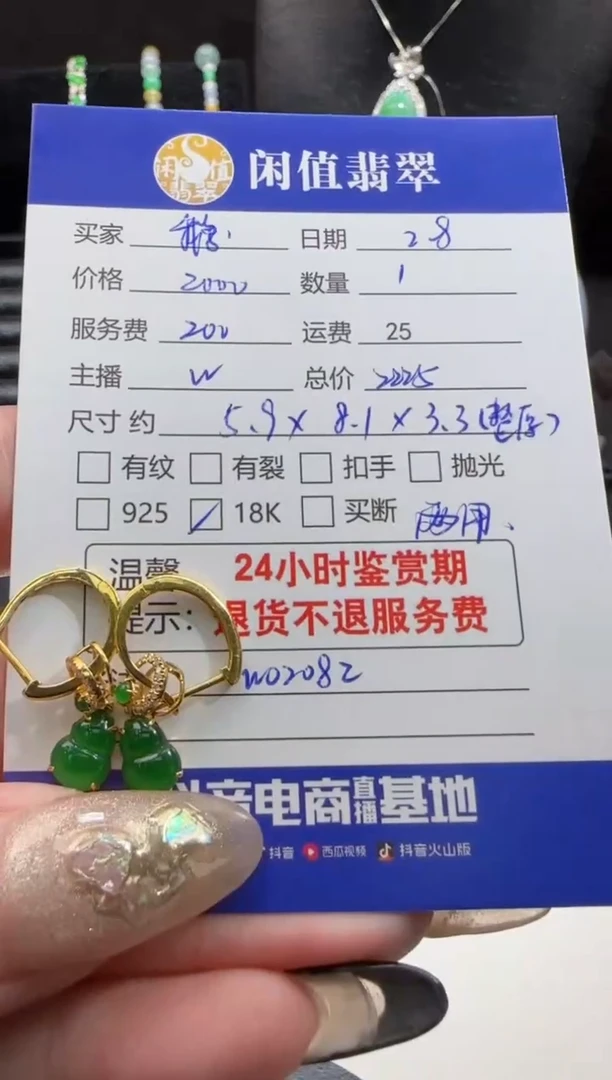 闲值翡翠
闲值翡翠
买家 日期 2 8
价格 2000 数量 1
服务费 200 运费 25
主播 W 总价 2225
尺寸 约 5.9 x 8.1 x 3.3 (整厚)
有纹 有裂 扣手 抛光
925 18K 买断 两用
温馨 24小时鉴赏期
提示: 退货不退服务费
W02082
抖音电商直播基地
抖音 西瓜视频 抖音火山版